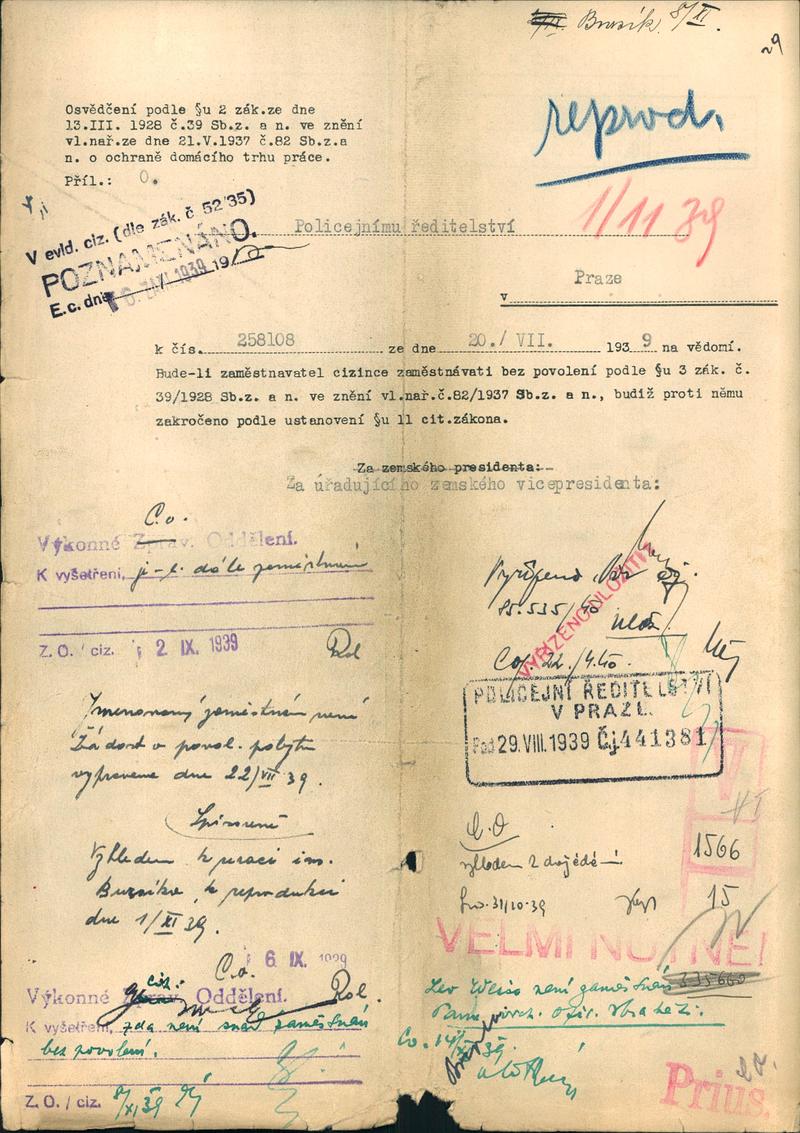 Bursík 8/XI.
29
Osvědčení podle §u 2 zák.ze dne
13.III. 1928 č.39 Sb.z. a n. ve znění
vl.nař.ze dne 21.V.1937 č.82 Sb.z.a
n. o ochraně domácího trhu práce.
Příl.: 0.
reprod.
1/11 39
V evid. ciz. (dle zák. č 52'35)
POZNAMENÁNO.
E.c. dne 1939 19
Policejnímu ředitelství
Praze
v
k čís. 258108 ze dne 20./ VII. 1939 na vědomí.
Bude-li zaměstnavatel cizince zaměstnávati bez povolení podle §u 3 zák. č.
39/1928 Sb.z. a n. ve znění vl.nař.č.82/1937 Sb.z. a n., budiž proti němu
zakročeno podle ustanovení §u 11 cit.zákona.
Za zemského presidenta:
Za úřadujícího zemského vicepresidenta:
C.o.
Výkonné Zprav. Oddělení.
K vyšetření, je-li dále zaměstnán
Z. O. / ciz. 2 IX. 1939
Rol
Jmenovaný zaměstnán není
Žádost o povol. pobytu
vypravena dne 22/VII 39.
Vzhledem k
Bursíka, k reprodukci
dne 1/XI 39.
6 IX. 1939
C.o.
ciz.
Výkonné Zprav. Oddělení.
Rol.
K vyšetření, zda není snad zaměstnán
bez povolení.
Z. O. / ciz. 8/XI 39
Vyřízeno
VYŘÍZENO ULOŽITI
85.535/40
Co. 22./4.40.
POLICEJNÍ ŘEDITELSTVÍ
V PRAZE.
Pod 29.VIII.1939 Čj 441381
VI
1566
15
31/10.39
VELMI NUTNÉ!
335660
Lev Weiss není zaměstnán
Co. 14/XI 39.
Prius.